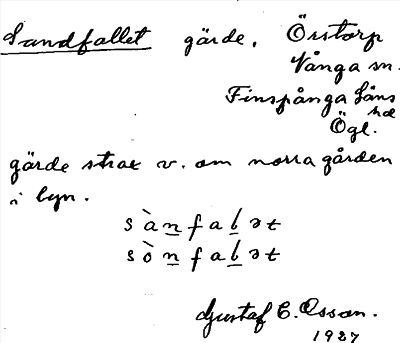 Sandfallet gärde. Örstorp
Vånga sn.
Finspånga läns
hd
Ögl.
gärde strax v. om norra gården
i byn.
sànfalət
sònfalət
Gustaf E. Osson.
1927